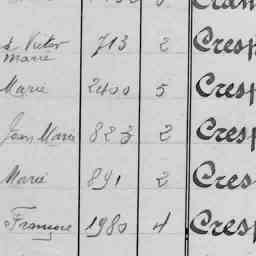 & Victor 713 2 Cresp
Marie
Marie 2400 5 Cresp
Jean Marie 823 2 Cresp
Marie 891 2 Cresp
Françoise 1980 4 Cresp